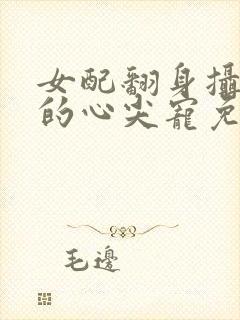 女配翻身攝
的心尖寵免
毛邊